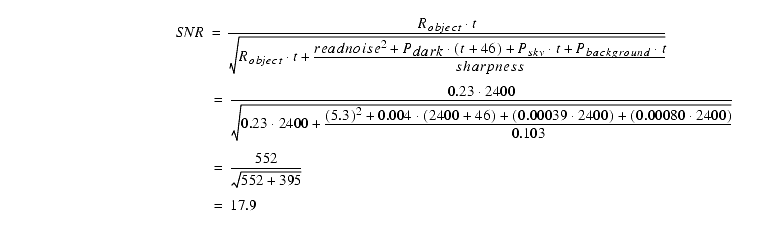 SNR = \frac{R_{object} \cdot t}{\sqrt{R_{object} \cdot t + \frac{readnoise^2 + P_{dark} \cdot (t + 46) + P_{sky} \cdot t + P_{background} \cdot t}{sharpness}}}
= \frac{0.23 \cdot 2400}{\sqrt{0.23 \cdot 2400 + \frac{(5.3)^2 + 0.004 \cdot (2400 + 46) + (0.00039 \cdot 2400) + (0.00080 \cdot 2400)}{0.103}}}
= \frac{552}{\sqrt{552 + 395}}
= 17.9